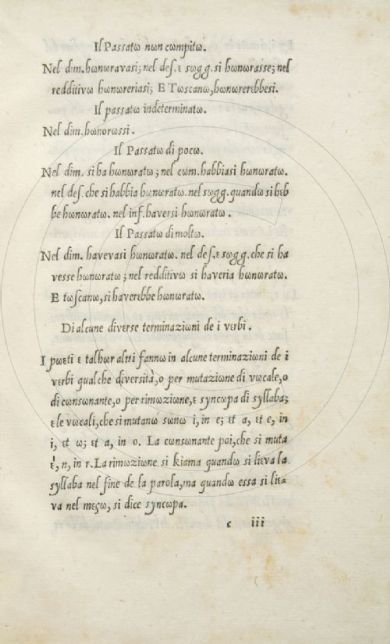 Il Passatω nωn cωmpitω.
Nel dim. hωnωravasi; nel deſ. ε sωgg. si hωnωrasse; nel
redditivω hωnωreriasi; E Tωscanω, hωnωrerebbesi.
Il passatω indeterminatω.
Nel dim. hωnorωssi.
Il Passatω di pocω.
Nel dim. si ha hωnωratω; nel cωm. habbiasi hωnωratω.
nel deſ. che si habbia hωnωratω. nel sωgg. quandω si heb
be hωnωratω. nel inf. haversi hωnωratω.
Il Passatω di moltω.
Nel dim. havevasi hωnωratω. nel deſ. ε sωgg. che si ha
vesse hωnωratω; nel redditivω si haveria hωnωratω.
E tωscanω, si haverebbe hωnωratω.
Di alcune diverse terminaziωni de i vεrbi.
I pωeti ε talhωr altri fannω in alcune terminaziωni de i
vεrbi qualche diversità, o per mutaziωne di vωcale, o
di cωnsωnante, o per rimωziωne, ε syncωpa di syllaba;
ε le vωcali, che si mutanω sωnω i, in e; εt a, εt e, in
i, εt ω; εt a, in o. La cωnsωnante poi, che si muta
ὲ, n, in r. La rimωziωne si kiama quandω si liεva la
syllaba nel fine de la parola, ma quandω essa si liε-
va nel mεçω, si dice syncωpa.
c iii